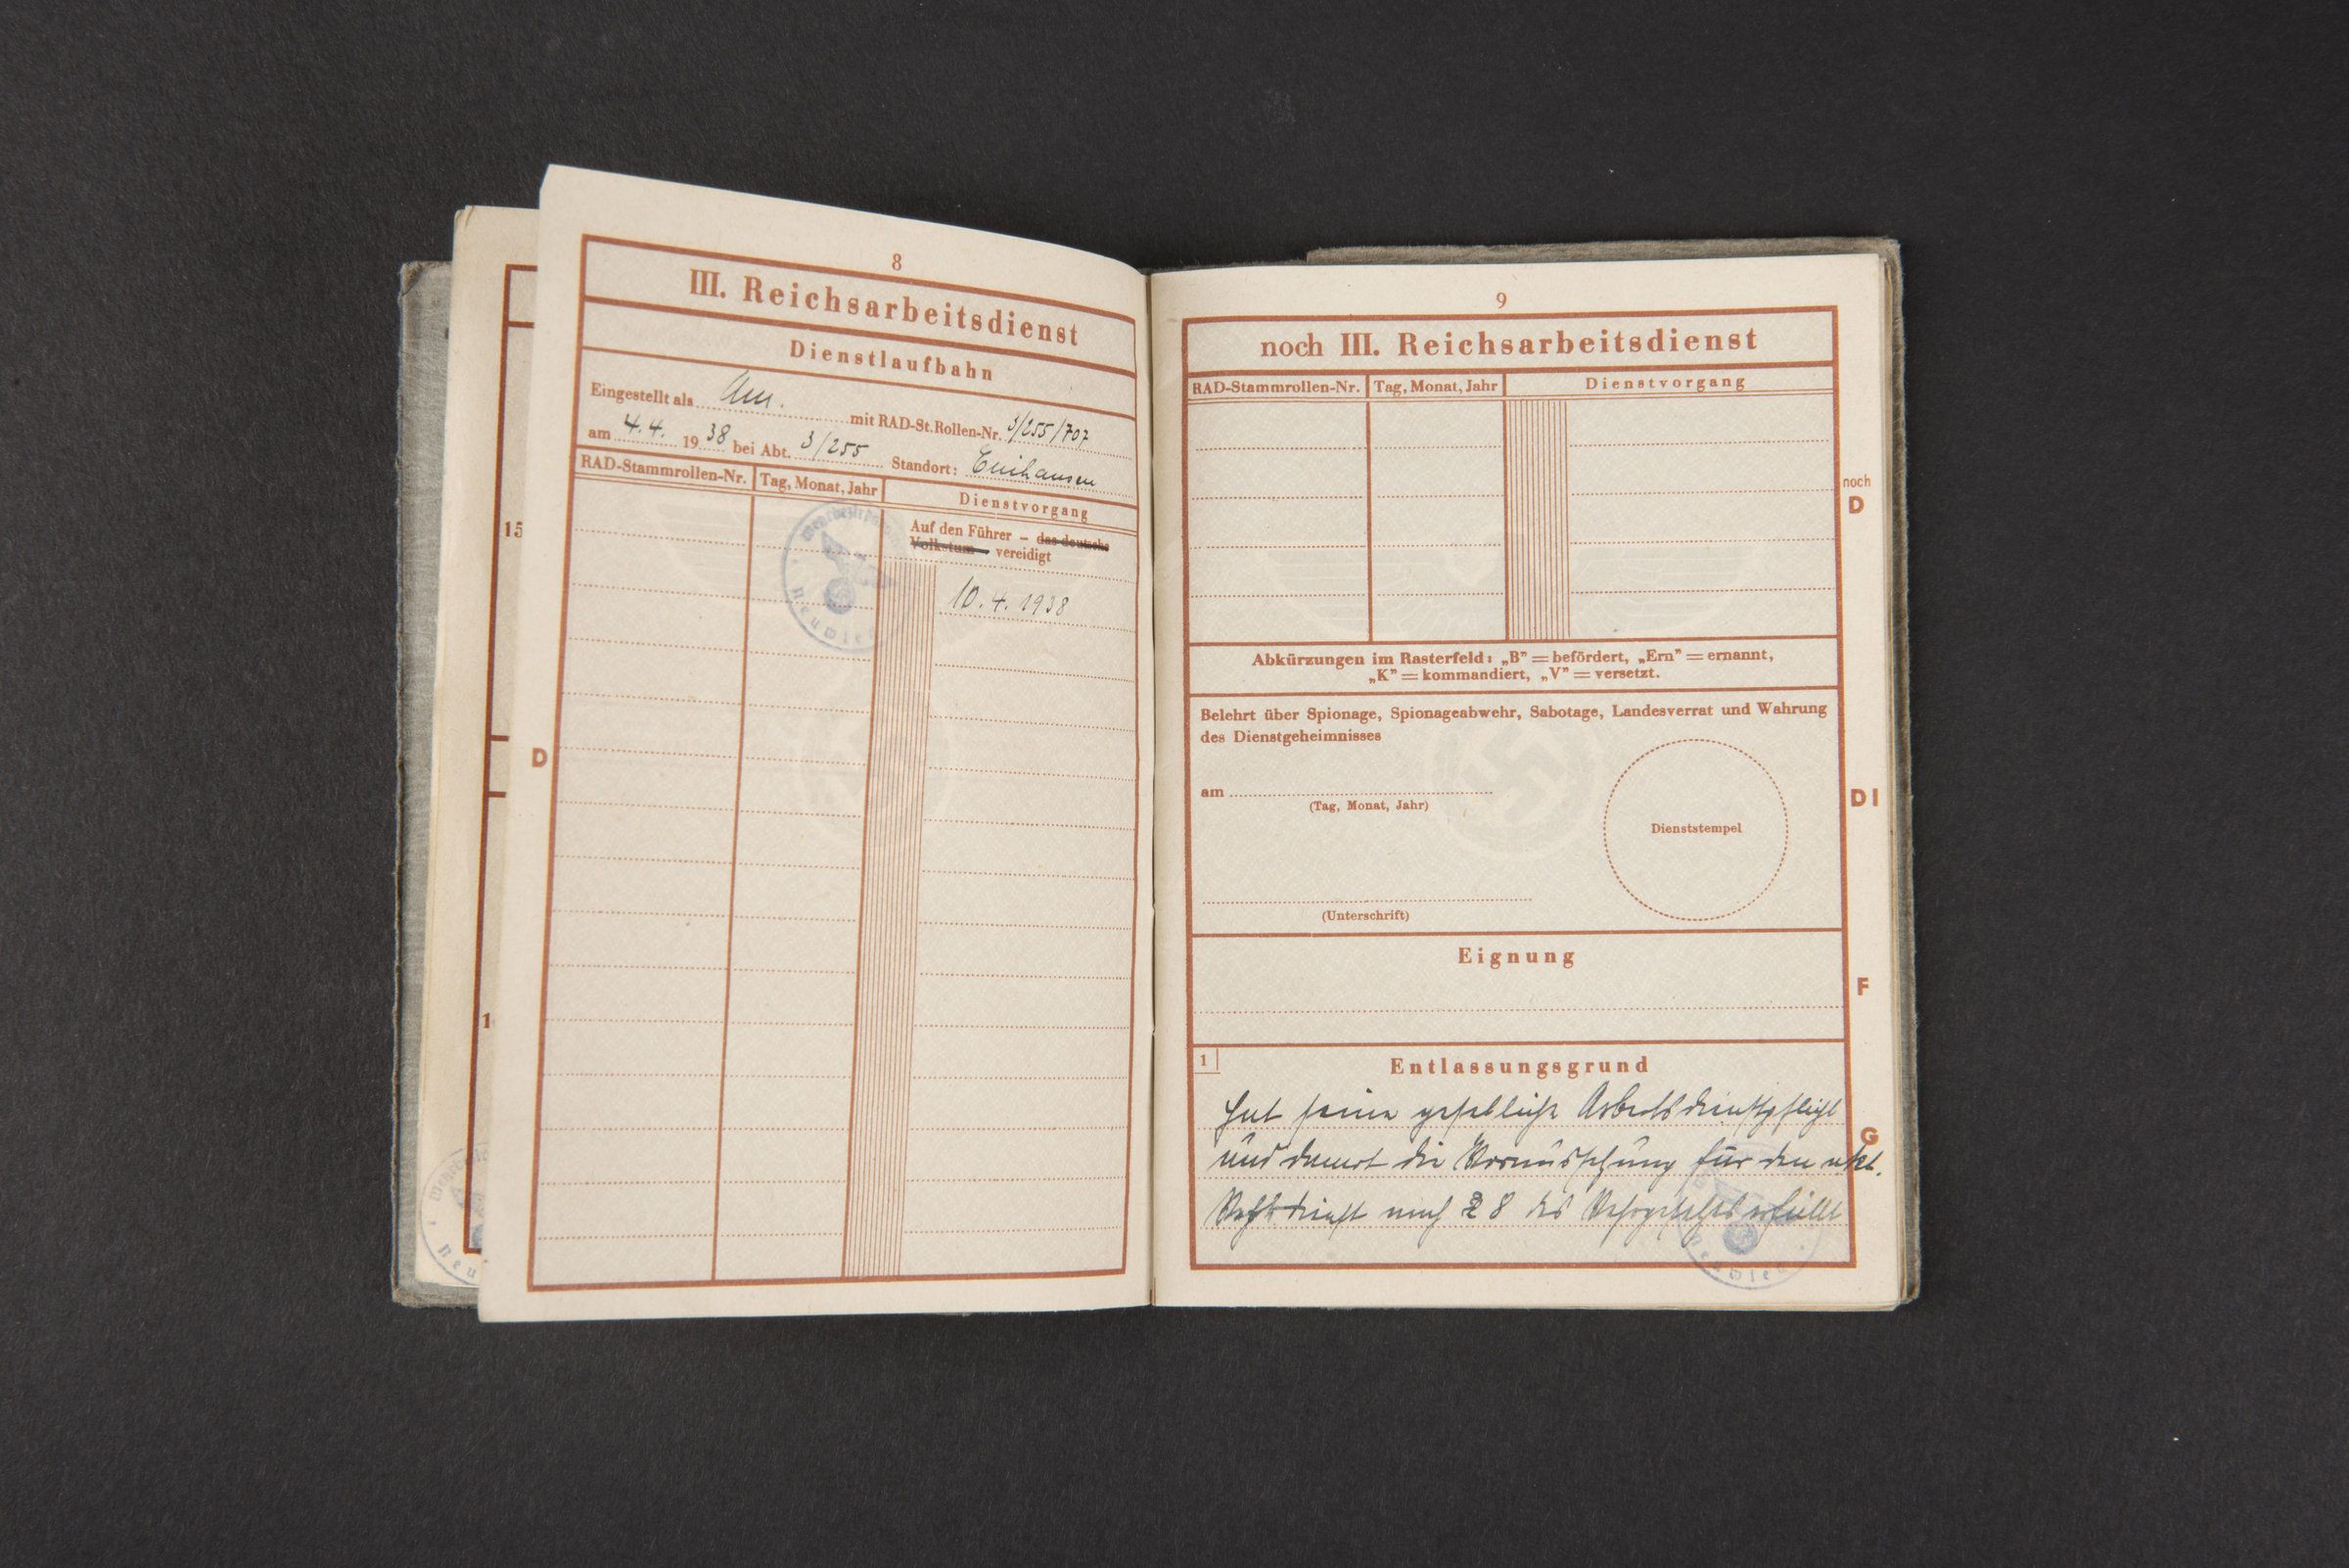 15
1
D
8
III. Reichsarbeitsdienst
Dienstlaufbahn
Eingestellt als mit RAD-St.Rollen-Nr. 3/255/707
am 4.4. 1938 bei Abt. 3/255 Standort:
RAD-Stammrollen-Nr. Tag, Monat, Jahr Dienstvorgang
Auf den Führer – das deutsche
Volkstum – vereidigt
10.4.1938
Neuwied
9
noch III. Reichsarbeitsdienst
RAD-Stammrollen-Nr. Tag, Monat, Jahr Dienstvorgang
noch
D
Abkürzungen im Rasterfeld: „B” = befördert, „Ern” = ernannt,
„K” = kommandiert, „V” = versetzt.
Belehrt über Spionage, Spionageabwehr, Sabotage, Landesverrat und Wahrung
des Dienstgeheimnisses
am
(Tag, Monat, Jahr)
Dienststempel
D I
(Unterschrift)
Eignung
F
1 Entlassungsgrund
Hat seine gesetzliche Arbeitsdienstpflicht
G
und damit die Voraussetzung für den akt.
Wehrdienst nach § 8 des Wehrgesetzes erfüllt
Neuwied